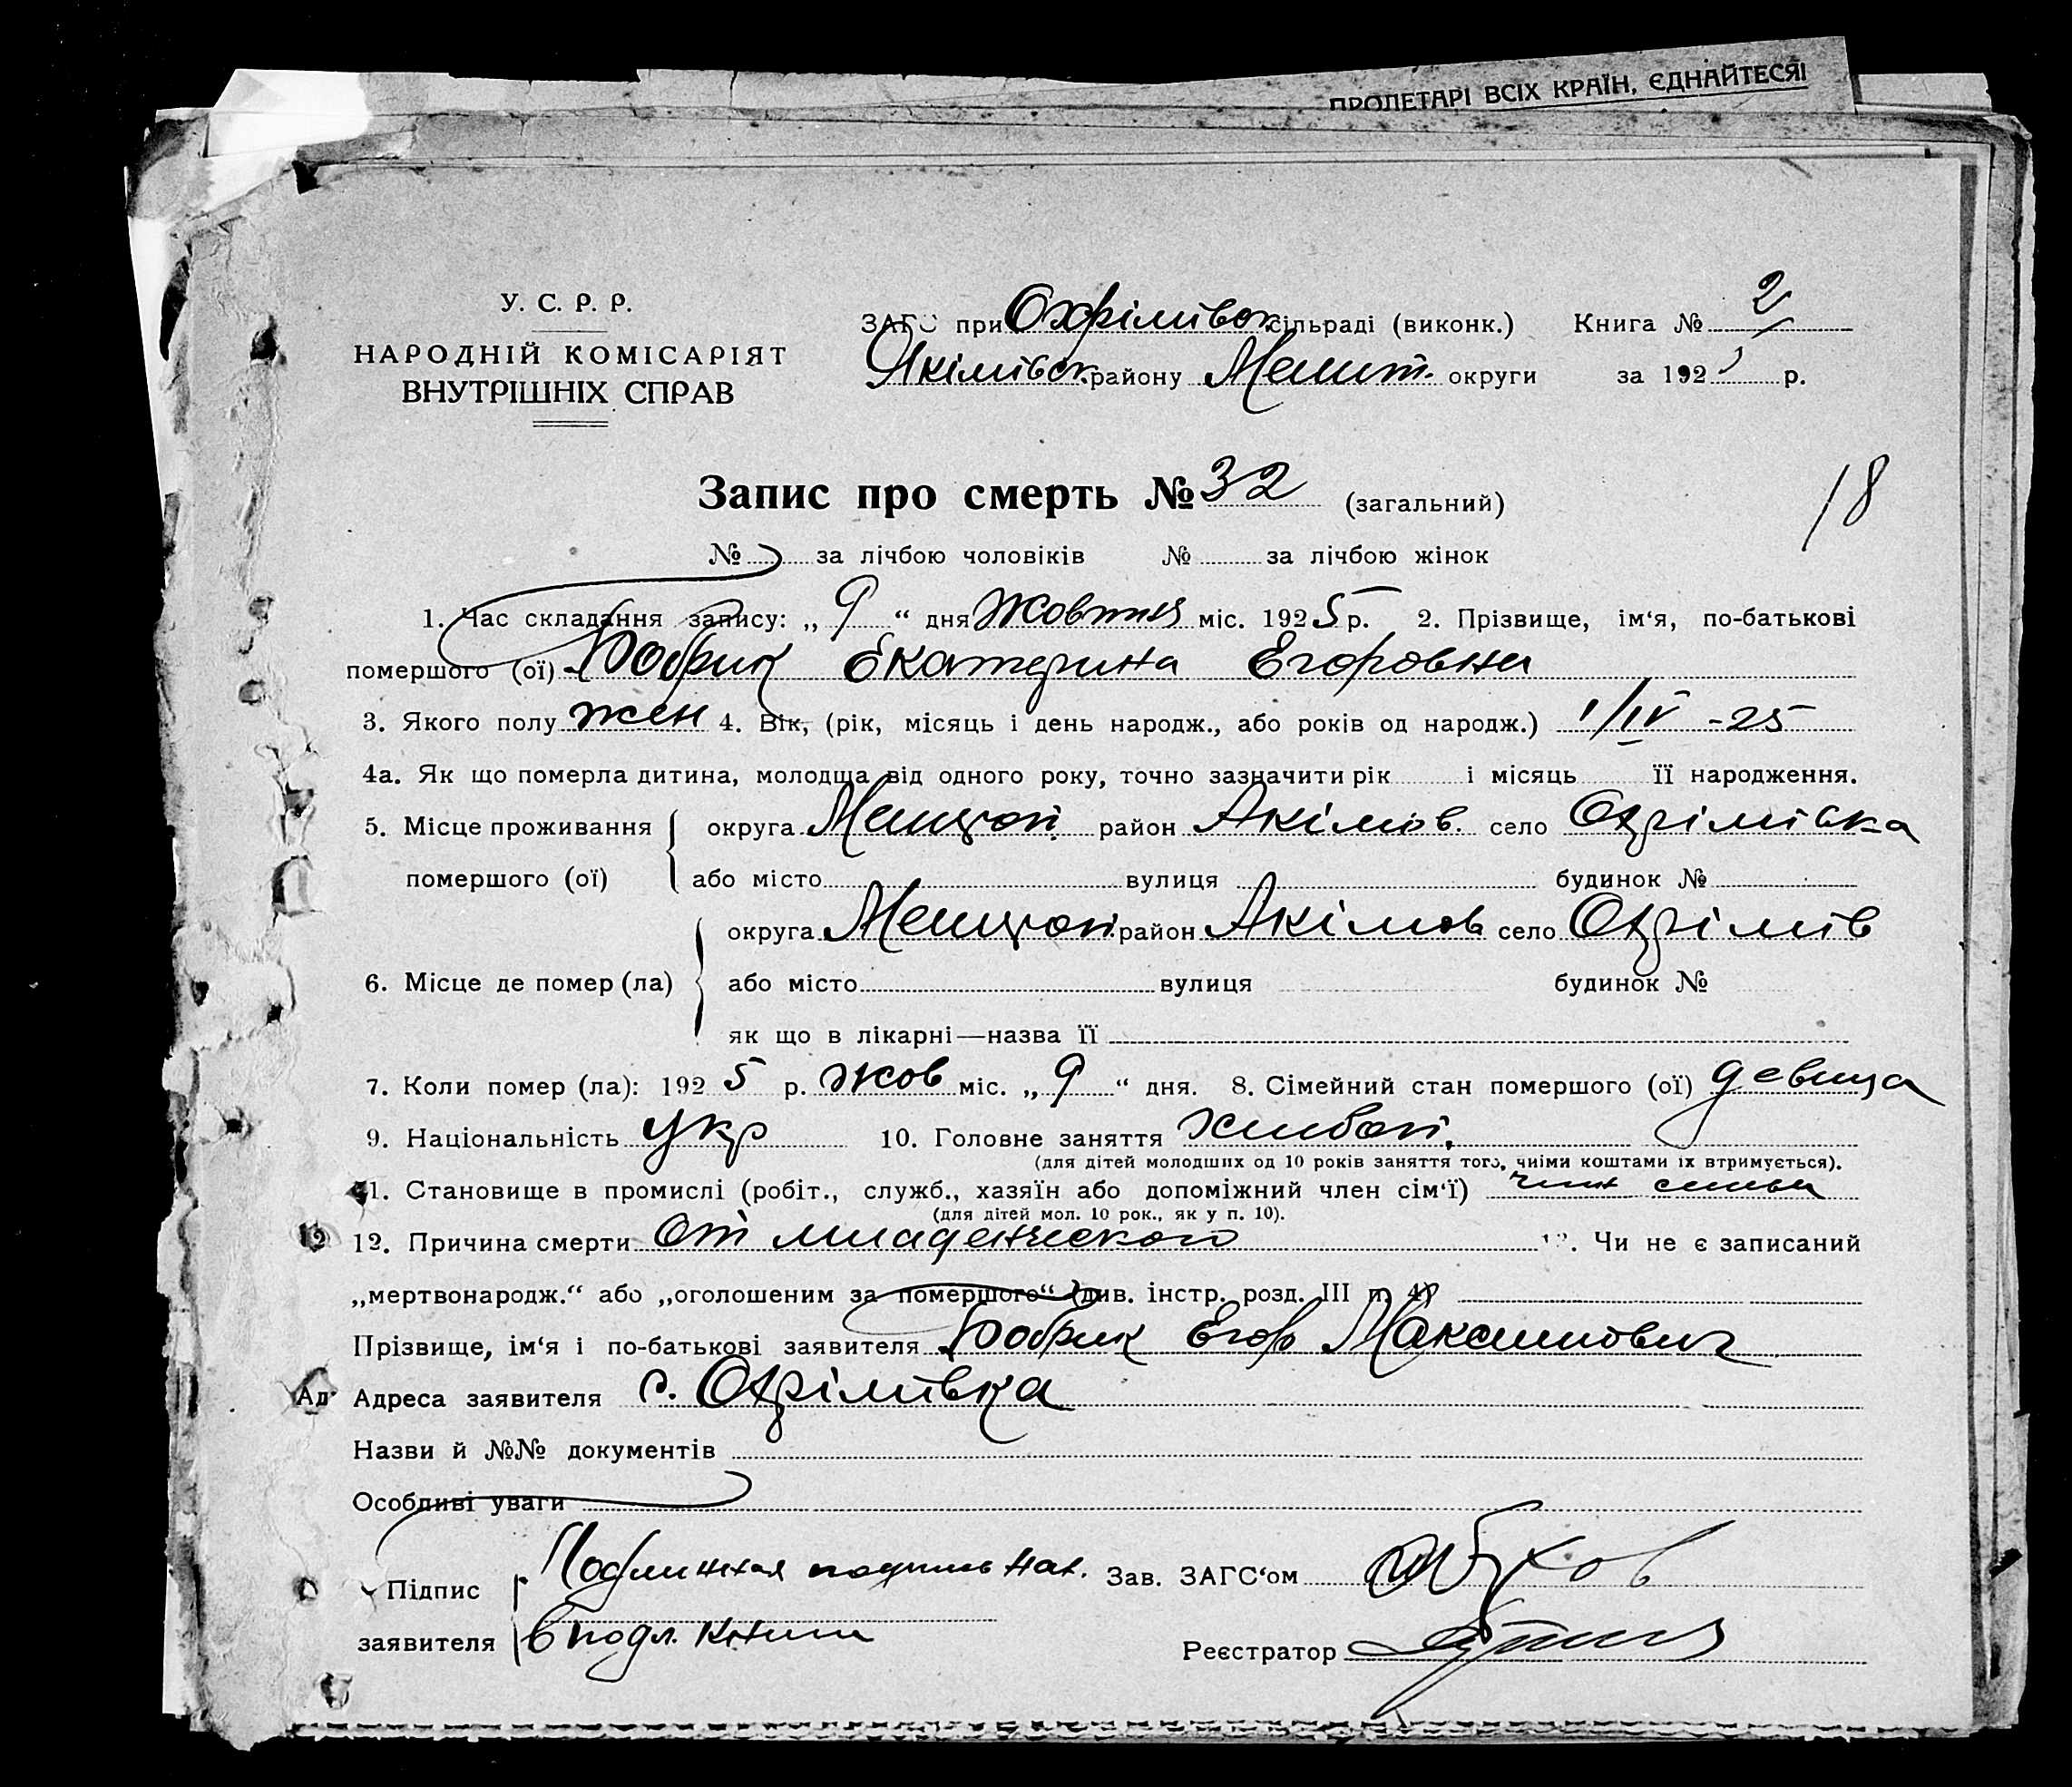 ПРОЛЕТАРІ ВСІХ КРАЇН, ЄДНАЙТЕСЯ!
У. С. Р. Р.
НАРОДНІЙ КОМІСАРІЯТ
ВНУТРІШНІХ СПРАВ
ЗАГС при Охрімівськ. сільраді (виконк.) Книга № 2
Якімівськ. району Мелит. округи за 192 р.
Запис про смерть № 32 (загальний)
18
№ за лічбою чоловіків № за лічбою жінок
1. Час складання запису: „ 9 “ дня Жовтня міс. 1925 р. 2. Прізвище, ім‘я, по-батькові
помершого (ої) Бобрик Екатерина Егоровна
3. Якого полу жен 4. Вік, (рік, місяць і день народж., або років од народж.) 1/IV -25
4а. Як що померла дитина, молодша від одного року, точно зазначити рік і місяць її народження.
5. Місце проживання округа район Акімов. село Охрімівка
помершого (ої) або місто вулиця будинок №
округа район Акімов село Охрімів
6. Місце де помер (ла) або місто вулиця будинок №
як що в лікарні—назва її
7. Коли помер (ла): 192 5 р. жов міс. „ 9 “ дня. 8. Сімейний стан помершого (ої) девица
9. Національність укр 10. Головне заняття хлібоп.
(для дітей молодших од 10 років заняття того, чиїми коштами їх втримується).
11. Становище в промислі (робіт., служб., хазяїн або допоміжний член сім‘ї) член семьи
(для дітей мол. 10 рок., як у п. 10).
12. Причина смерти От младенческого 13. Чи не є записаний
„мертвонародж.“ або „оголошеним за помершого“ (див. інстр. розд. III п. 4)
Прізвище, ім‘я і по-батькові заявителя Бобрик Егор Максимович
Ад Адреса заявителя с. Охрімівка
Назви й №№ документів
Особливі уваги
Підпис Подлинная подпись нах. Зав. ЗАГС‘ом
заявителя в подл. книги Реєстратор